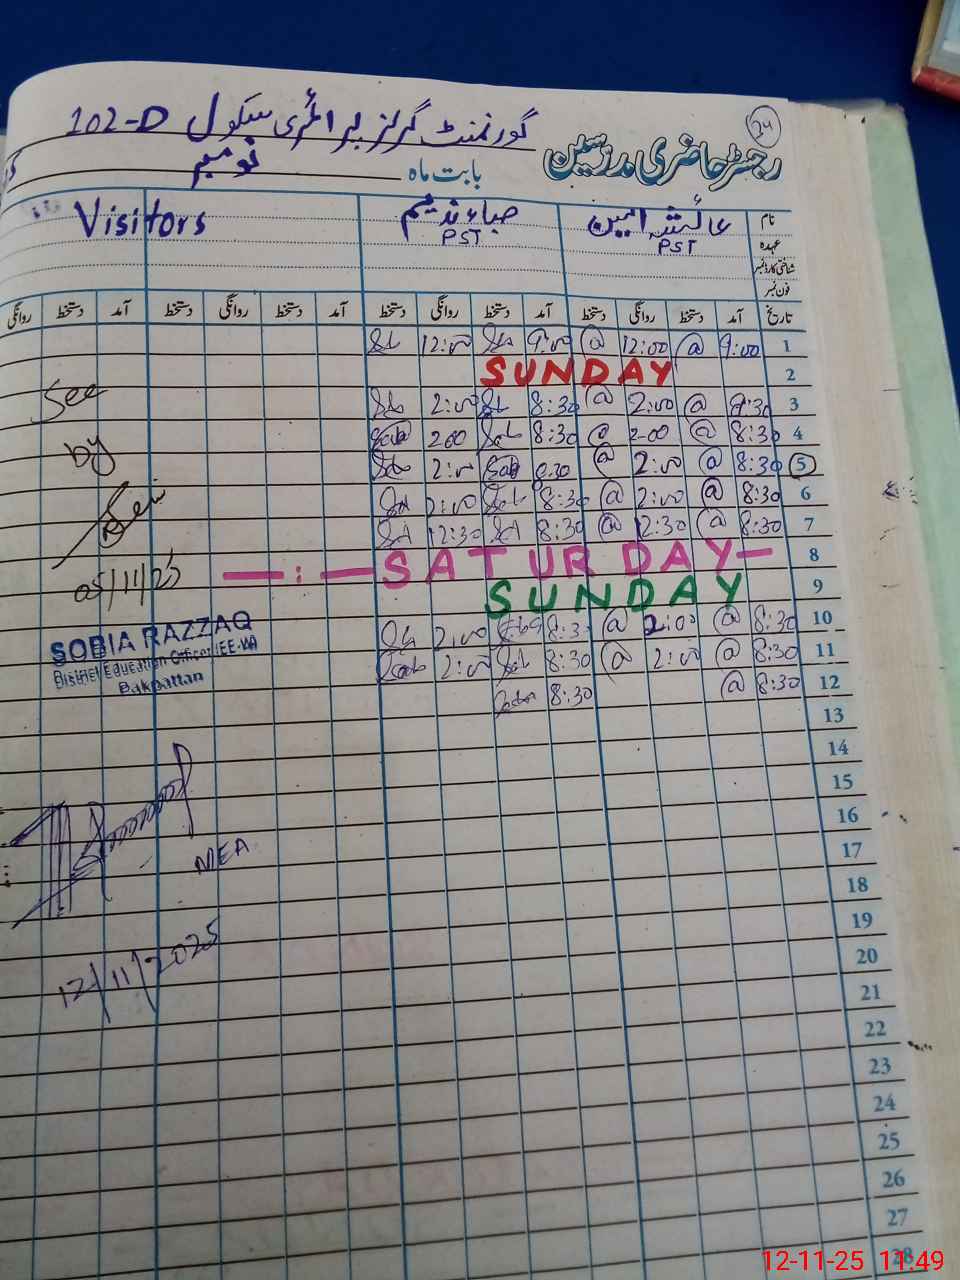 24
رجسٹر حاضری مدرسین
گورنمنٹ گرلز پرائمری سکول 102-D
بابت ماہ نومبر
نام عائشہ امین صباء ندیم Visitors
عہدہ PST PST
شناختی کارڈ نمبر
فون نمبر
تاریخ آمد دستخط روانگی دستخط آمد دستخط روانگی دستخط آمد دستخط روانگی دستخط آمد دستخط روانگی
1 9:00 @ 12:00 @ 9:00 12:00
2 SUNDAY
3 8:30 @ 2:00 @ 8:30 2:00
4 8:30 @ 2:00 @ 8:30 200
5 8:30 @ 2:00 @ 8:30 2:00
6 8:30 @ 2:00 @ 8:30 2:00
7 8:30 @ 12:30 @ 8:30 12:30
8 — : — SATURDAY —
9 SUNDAY
10 8:30 @ 2:00 @ 8:30 2:00
11 8:30 @ 2:00 @ 8:30 2:00
12 8:30 @ 8:30
13
14
15
16
17
18
19
20
21
22
23
24
25
26
27
28
See
by
05/11/25
SOBIA RAZZAQ
District Education Officer (EE-W)
Pakpattan
MEA
12/11/2025
12-11-25 11:49